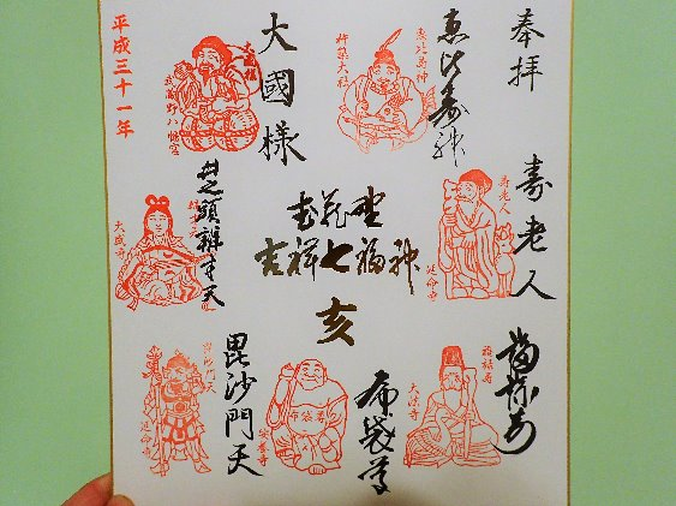 奉拝
恵比寿神
恵比寿神
杵築大社
大國様
大國様
武蔵野八幡宮
平成三十一年
寿老人
寿老人
延命寺
武蔵野
吉祥七福神
亥
井之頭辨才天
大盛寺
福禄寿
福禄寿
大法寺
布袋尊
布袋尊
安養寺
毘沙門天
毘沙門天
延命寺